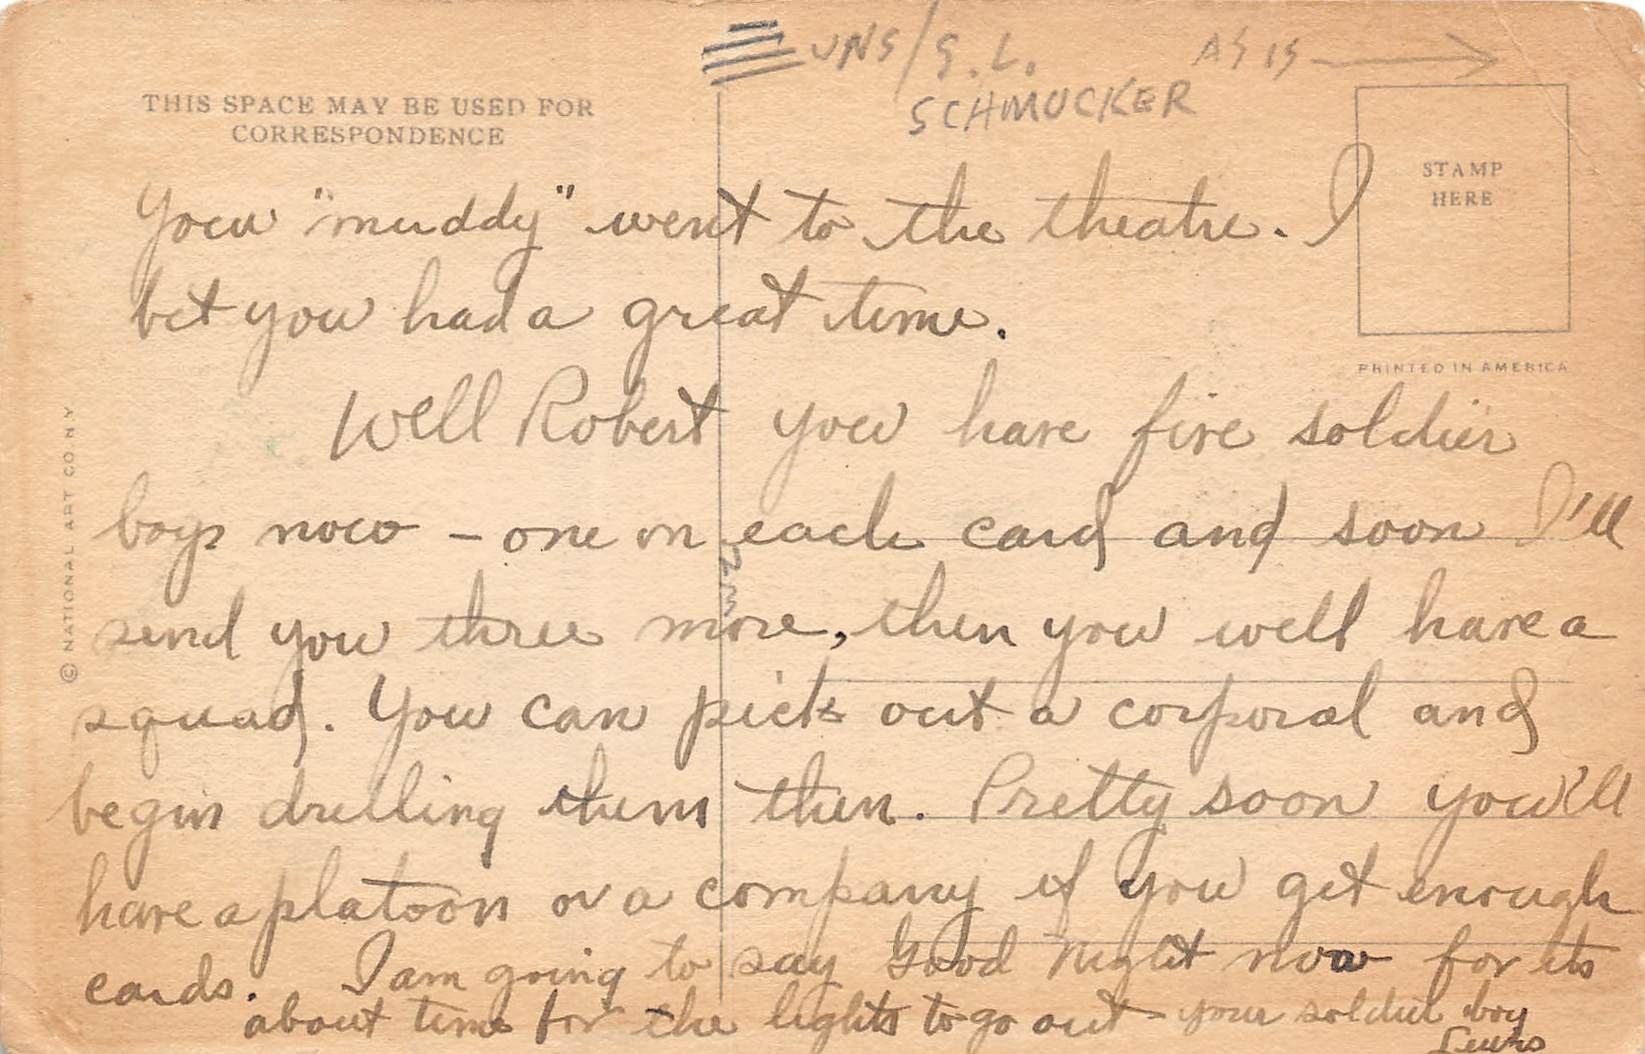 UNS/S.L. AS IS
SCHMUCKER
THIS SPACE MAY BE USED FOR
CORRESPONDENCE
STAMP
HERE
PRINTED IN AMERICA
© NATIONAL ART CO NY
You "muddy" went to the theatre. I
bet you had a great time.
Well Robert you have five soldier
boys now - one on each card and soon I'll
send you three more, then you will have a
squad. You can pick out a corporal and
begin drilling them then. Pretty soon you'll
have a platoon or a company if you get enough
cards. I am going to say Good Night now for its
about time for the lights to go out - your soldier boy